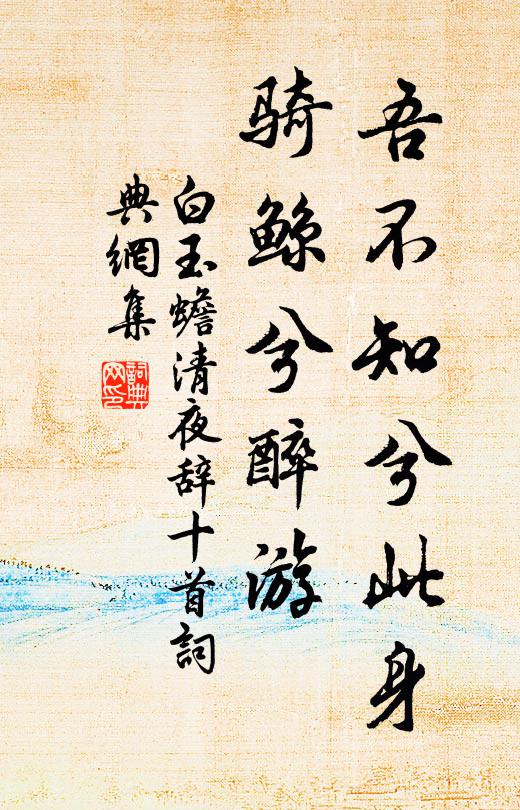 吾不知兮此身
骑鲸兮醉游
白玉蟾清夜辞十首詞
典網集
詞典
网印